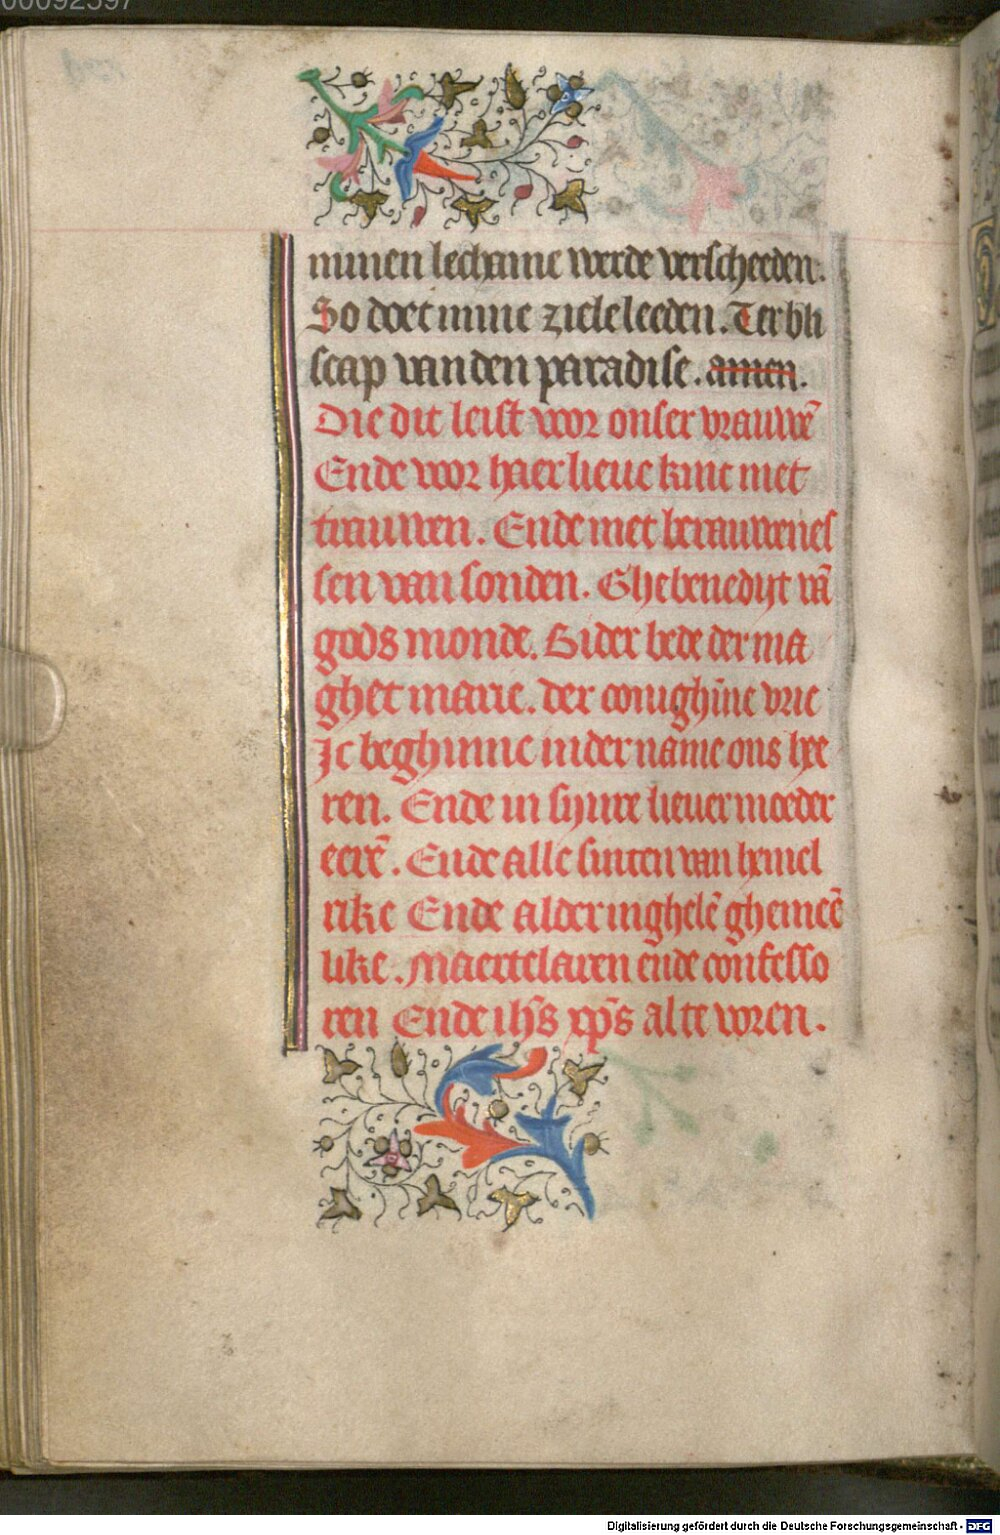 00092597
minen lechame werde verscheeden.
So doet mine ziele leeden. Ter bli
scap van den paradise. amen.
Die dit leist voor onser vrauwē
Ende voor haer lieue kint met
trauwen. Ende met berauwenes
sen van sonden. Ghebenedijt vā
gods monde. Bider bede der ma
ghet marie. der conighīne vrie
Ic beghinne in der name ons hee
ren. Ende in syure lieuer moeder
eerē. Ende alle sinten van hemel
rike Ende alder inghelē ghemeē
like. Maertelaren ende confesso
ren Ende ihs̄ xp̄s al te voren.
Digitalisierung gefördert durch die Deutsche Forschungsgemeinschaft - DFG